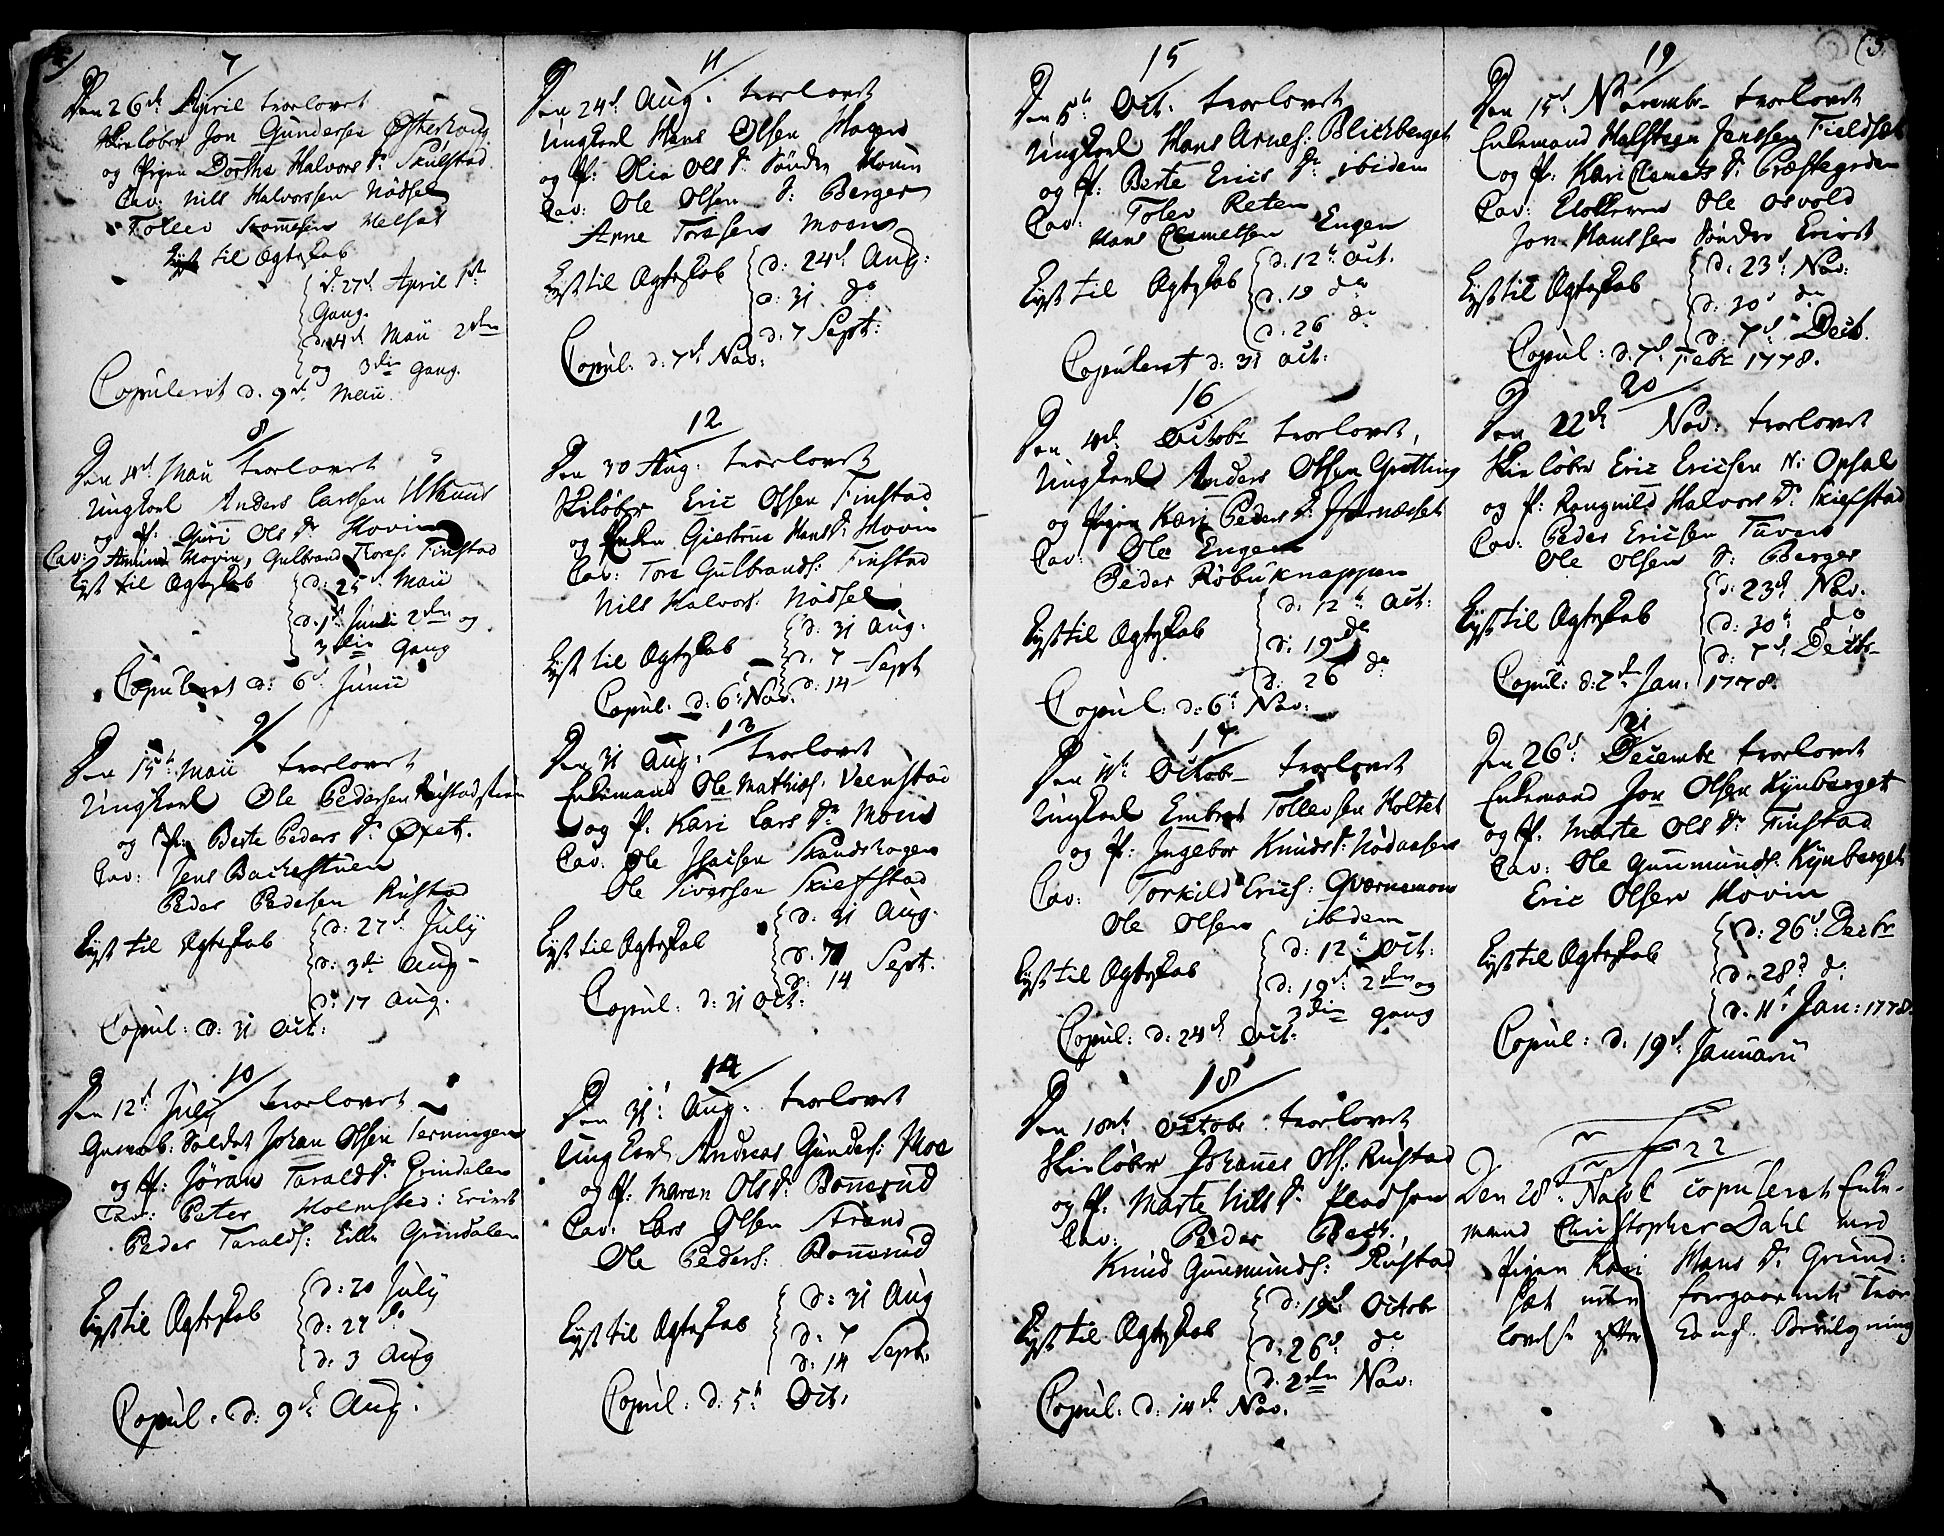 7
Den 26de April trorlovet
Skieløber Jon Gundersen Østerhaug
og Pigen Dorthe Halvors Dr Skulstad
Cav: Nils Halvorssen Nødsel
Tollev Melsæt
lyst til Ægteskab
d: 27de April 1ste
Gang.
d: 4de Maii 2den
og 3die Gang.
Copuleret d. 9de Maii.
8
Den 4de Maii trorlovet
Ungkarl Anders Larssen
og P: Guri Ols Dr Hovin
Cav: Amund Hovin, Gulbrand Tores: Finstad
Lyst til Ægteskab
d: 25de Maii
d: 1ste Junii 2den og
3die Gang
Copuleret d: 6te Junii
9
Den 15de Maii trorlovet
Ungkarl Ole Pedersen Rustadstuen
og P: Berte Peders Dr Øxet.
Cav: Jens Backestuen
Peder Pedersen Rustad
Lyst til Ægteskab
d: 27de July
d: 3die Aug
d: 17 Aug.
Copul: d: 31 Oct:
10
Den 12te July trorlovet
Gevorb: Soldat Johan Olsen Terningen
og P: Jøran Taralds Dr Grindalen
Cav: Peter Holmsted:
Peder Taralds: Lille Grindalen
Lyst til Ægteskab
d: 20 July
d: 27 do
d: 3 Aug
Copul. d: 9de Aug.
11
Den 24de Aug. trorlovet
Ungkarl Hans Olsen Moen
og P: Olia Ols Dr Søndre Moen
Cav: Ole Olsen S: Berger
Arne Toresen Moen
Lyst til Ægteskab
d: 24de Aug:
d: 31 do
d: 7 Sept:
Copul: d: 7de Nov:
12
Den 30 Aug: trorlovet
Skiløber Eric Olsen Finstad
og Enken Giertrue Hans Dr Hovin
Cav: Tore Gulbrands: Finstad
Nils Halvors: Nødsel
Lyst til Ægteskab
d: 31 Aug.
d. 7 Sept
d: 14
Copul: d: 6te Nov.
13
Den 31 Aug. trorlovet
Enkemand Ole Mathias: Veenstad
og P. Kari Lars Dr Moen
Cav: Ole Isacsen Strandskogen
Ole Siversen Skiefstad
Lyst til Ægteskab
d: 31 Aug.
d. 7 Sept:
d: 14
Copul: d: 31 Oct:
14
Den 31te Aug. trorlovet
Ungkarl Andreas Gunders: Moe
og P: Maren Ols Dr: Bonnerud
Cav: Lars Olsen Strand
Ole Peders: Bonnerud
Lyst til Ægteskab
d: 31 Aug
d: 7
d: 14 Sept.
Copul: d: 5te Oct.
15
Den 5te Oct. trorlovet
Ungkarl Hans Arnes: Blickberget
og P: Berte Erics Dr ibidem
Cav: Tolev Reten
Hans Clemetsen Engen
Lyst til Ægteskab
d: 12te Oct.
d. 19 do
d. 26 do
Copuleret d: 31 Oct:
16
Den 4de Octobr trorlovet,
Ungkarl Anders Olsen Grøtting
og Pigen Kari Peders Dr
Cav: Ole Engen
Peder Røbuknappen
Lyst til Ægteskab
d: 12te Oct:
d: 19de do
d: 26 do
Copul: d: 6te Nov:
17
Den 11te Octobr trorlovet
Ungkarl Embret Tollevsen Holtet
og P: Ingebor Knuds Dr: Nødaasen
Cav: Torkild Erics: Qværnemoen
Ole Olsen ibdem
Lyst til Ægteskab
d: 12te Oct:
d: 19de 2den og
3die gang
Copul: d: 24de Oct:
18
Den 18de Octobr: trorlovet
Skieløber Johannes Ols: Rustad
og P: Marte Nils Dr Pladsen
Cav: Peder Beck.
Knud Gunmunds: Rustad
Lyst til Ægteskab
d: 19de Octobr
d: 26de do
d: 2den Nov:
Copul: d: 14de Nov.
19
Den 15de Novembr trorlovet
Enkemand Halsteen Jenssen Fieldset
og P: Kari Clemets Dr: Præstegrden
Cav: Klokkeren Ole Osvold
Jon Hanssen Søndre
Lyst til Ægteskab
d: 23de Nov:
d: 30te do
d: 7de Decb.
Copul: d: 7de Febr 1778.
20
Den 22de Nov: trorlovet
Skieløber Eric Ericsen N: Opsal
og P. Rangnild Halvors Dr Skiefstad
Cav: Peder Ericsen
Ole Olsen S: Berger
Lyst til Ægteskab
d: 23de Nov.
d: 30te do
d: 7de Decbr
Copul: d: 2den Jan. 1778.
21
Den 26de Decembr trorlovet
Enkemand Jon Olsen Kynberget
og P. Marte Ols Dr Finstad
Cav: Ole Gunmunds: Kynberget
Eric Olsen Hovin
Lyst til Ægteskab
d: 26de Decbr
d: 28de do
d. 11te Jan: 1778.
Copul: d. 19de Januarii
22
Den 28de copuleret Enke-
mand Christopher Dahl med
Pigen Kari Hans Dr Grund:
sæt uden foregaaende Tror
lovelse efter Bevilgning